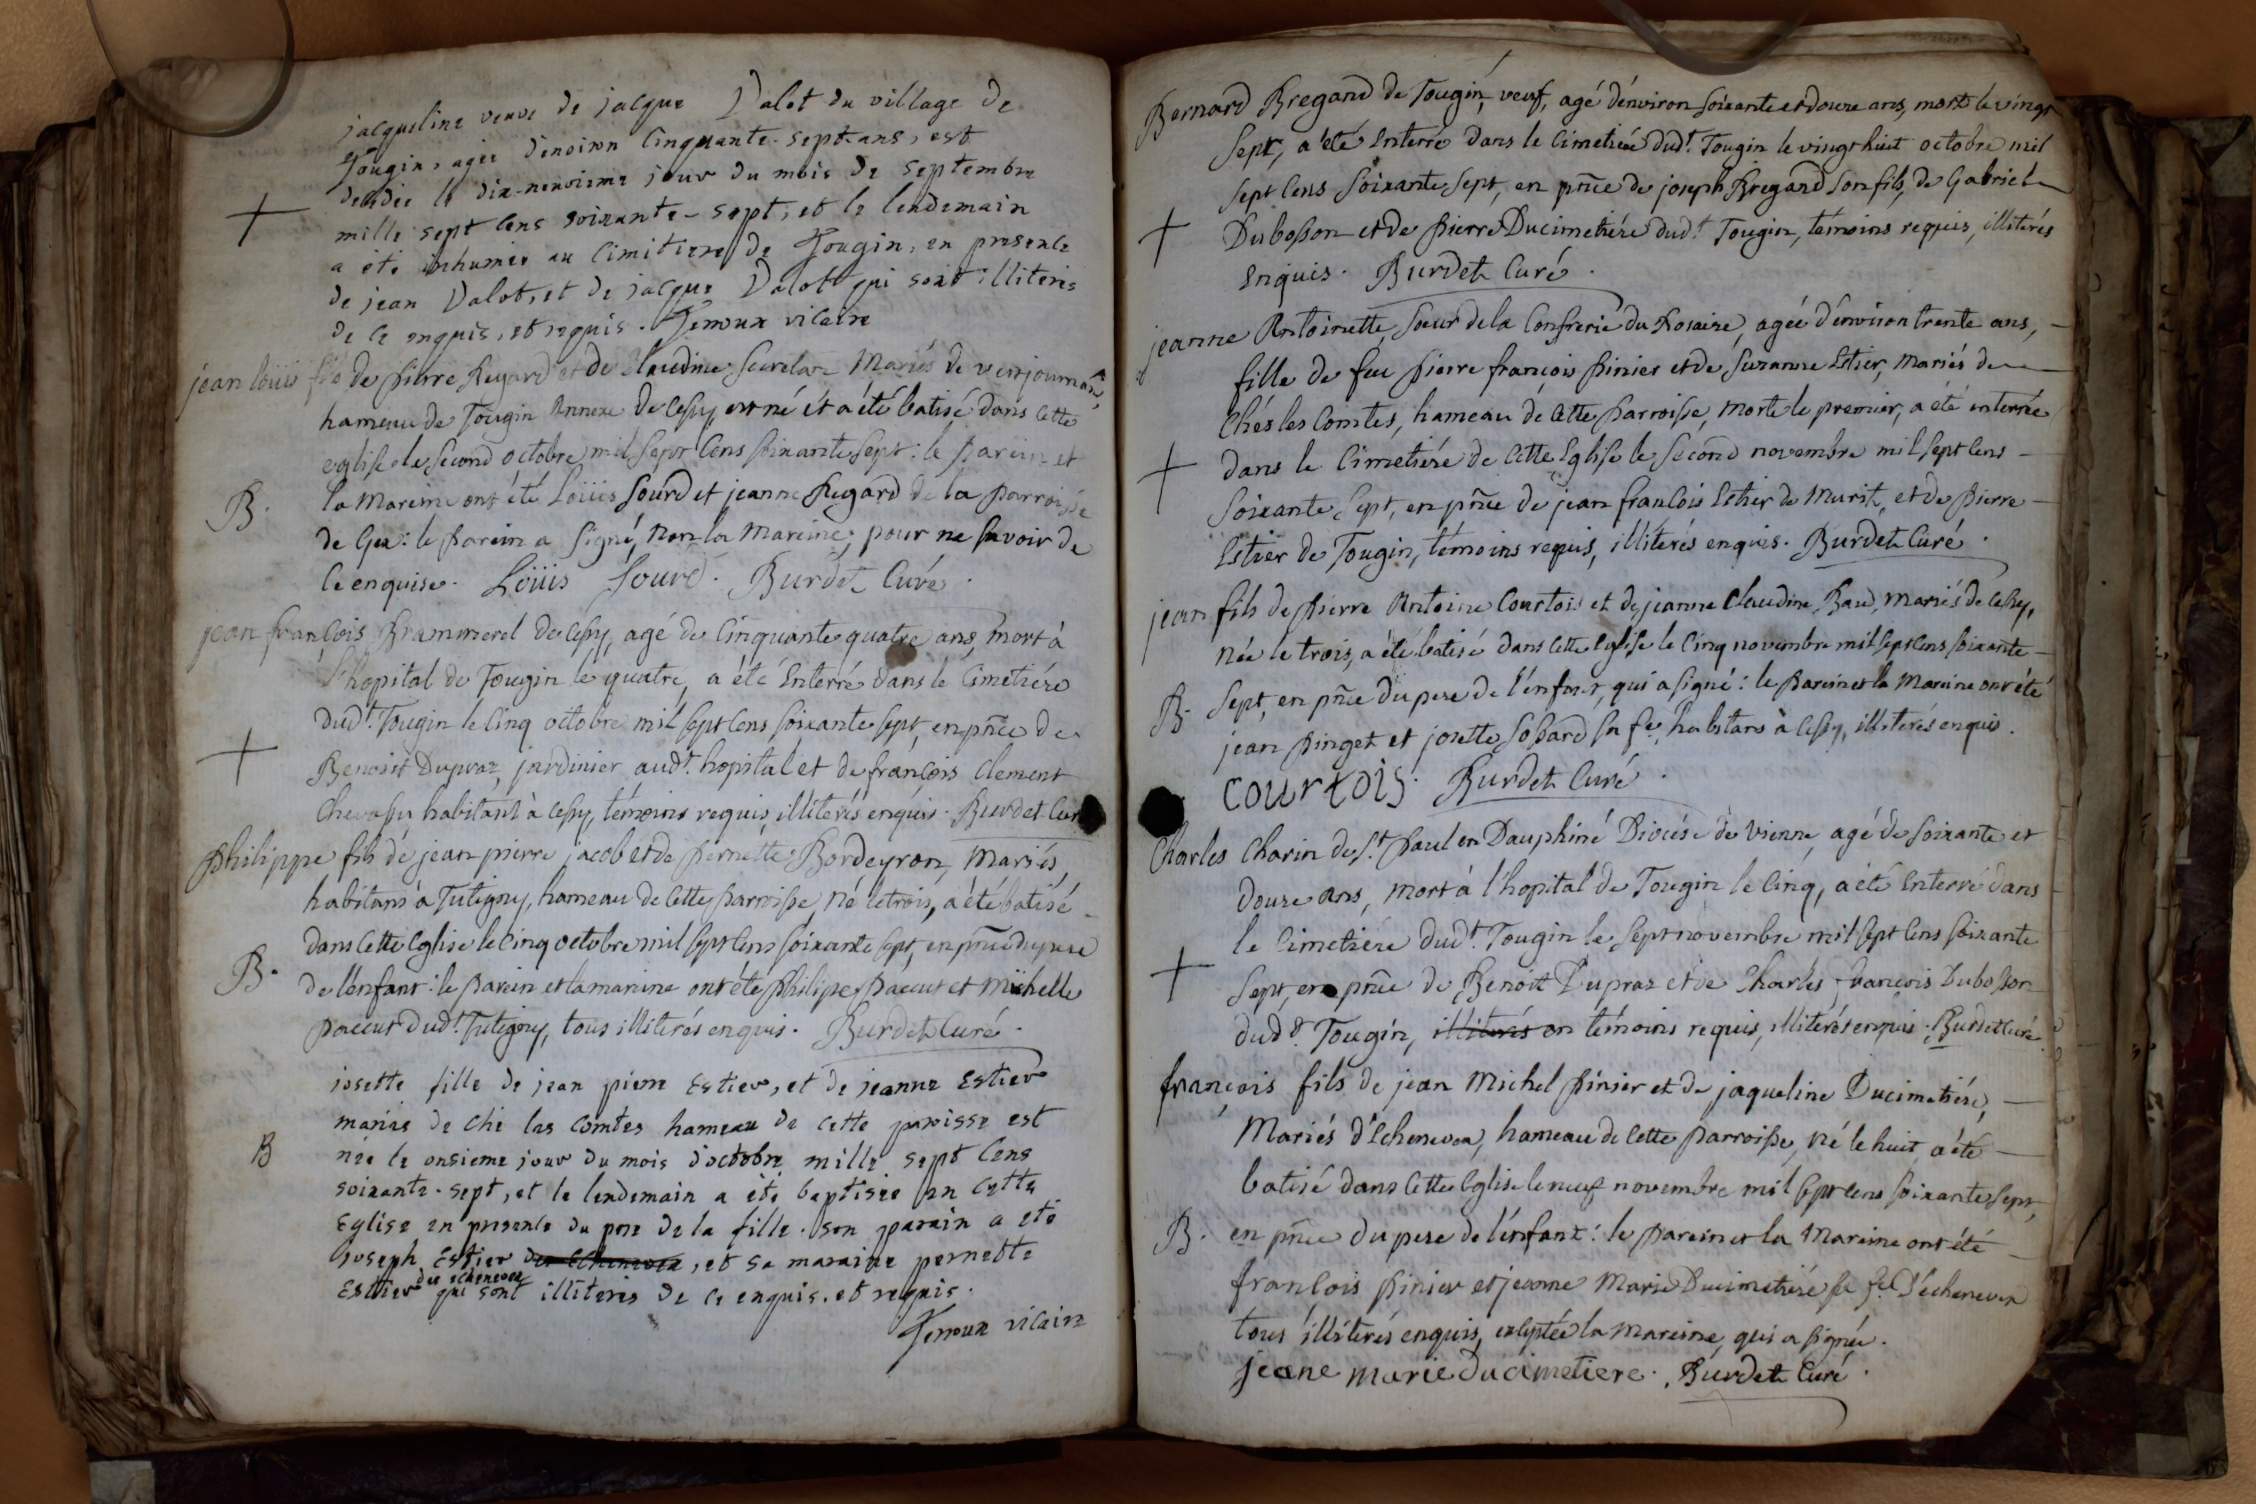 jacqueline veuve de jacque Dalot du village de
Tougin, agée denviron cinquante-sept-ans, est
decedée le dix-neuvieme jour du mois de septembre
mille sept cens soixante-sept, et le lendemain
a été inhumée au cimitiere de Tougin, en presence
de jean Dalot, et de jacque Dalot qui sont illiterés
de ce enquis, et requis. vicaire
jean loüis fils de pierre Regard et de Claudine mariés de
hameau de Tougin Annexe de Cessy est né et a été batisé dans cette
eglise le second octobre mil sept cens soixante sept: le parein et
B. la mareine ont été Loüis Sourd et jeanne Regard de la parroisse
de Gex: le parein a signé, non la mareine, pour ne savoir de
ce enquise. Loüis Sourd. Burdet Curé.
jean françois Brammerel de Cessy, agé de cinquante quatre ans, mort à
l'hopital de Tougin le quatre, a été enterré dans le cimetiére
dud.t Tougin le cinq octobre mil sept cens soixante sept, en pñce de
Benoist Dupraz, jardinier aud.t hopital et de françois Clement
habitant à Cessy, témoins requis, illiterés enquis. Burdet Cur
philippe fils de jean pierre jacob et de pernette Bordeyron, mariés,
habitans à Tutigny, hameau de cette parroisse, né le trois, a été batisé
dans cette Eglise le cinq octobre mil sept cens soixante sept, en pñce du pere
B. de l'enfant: le parein et la mareine ont été philipe paccut et michelle
paccut dud.t Tutigny, tous illiterés enquis. Burdet Curé.
josette fille de jean pierre Estier, et de jeanne Estier
mariés de ché las comtes hameau de cette paroisse est
B née le onsieme jour du mois d'octobre mille sept cens
soixante-sept, et le lendemain a été baptisée en cette
Eglise en presence du pere de la fille. son parain a eté
joseph Estier de echenevex, et sa maraine pernette
de echenevex
Estier qui sont illiterés de ce enquis, et requis.
vicaire
Bernard Bregand de Tougin, veuf, agé d'environ soixante et douze ans, mort le vingt
sept, a été enterré dans le cimetiére dud.t Tougin le vingt huit octobre mil
sept cens soixante sept, en pñce de joseph Bregand son fils, de Gabriel
Dubosson et de pierre Ducimetiére dud.t Tougin, témoins requis, illiterés
enquis. Burdet Curé.
jeanne Antoinette, soeur de la Confrerie du Rosaire, agée d'environ trente ans,
fille de feu pierre françois pinier et de Suzanne Estier, mariés de
chés les Comtes, hameau de cette parroisse, morte le premier, a été enterrée
dans le cimetiére de cette Eglise le second novembre mil sept cens
soixante sept, en pñce de jean françois Estier de Murit, et de pierre
Estier de Tougin, témoins requis, illiterés enquis. Burdet Curé.
jean fils de pierre Antoine Courtois et de jeanne Claudine Baud, mariés de Cessy,
née le trois, a été batisé dans cette Eglise le cinq novembre mil sept cens soixante
B. sept, en pñce du pere de l'enfant, qui a signé: le parein et la mareine ont été
jean pinget et josette Sossard sa fe, habitans à Cessy, illiterés enquis.
Courtois. Burdet Curé.
Charles Charin de S.t paul en Dauphiné Diocése de Vienne, agé de soixante et
douze ans, mort à l'hopital de Tougin le cinq, a été enterré dans
le cimetiére dud.t Tougin le sept novembre mil sept cens soixante
sept, en pñce de Benoit Dupraz et de Charles françois Dubosson
dud.t Tougin, illiterés en témoins requis, illiterés enquis. Burdet Curé.
françois fils de jean michel pinier et de jaqueline Ducimetiére,
mariés d'Echenevex, hameau de cette parroisse, né le huit, a été
batisé dans cette Eglise le neuf novembre mil sept cens soixante sept,
B. en pñce du pere de l'enfant: le parein et la mareine ont été
françois pinier et jeanne Marie Ducimetiére sa fe. d'echenevex
tous illiterés enquis, exceptée la mareine, qui a signée.
jeane marie ducimetiere. Burdet Curé.